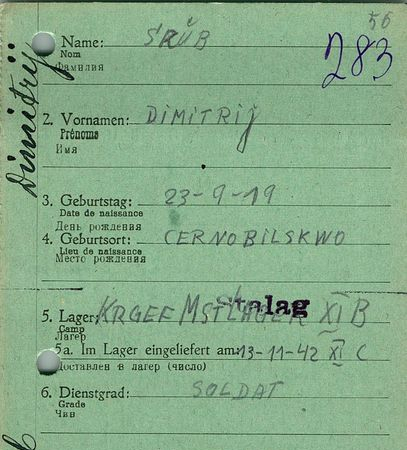 56
283
Dimitrij
1. Name: SKÜB
Nom
Фамилия
2. Vornamen: DIMITRIJ
Prénoms
Имя
3. Geburtstag: 23-9-19
Date de naissance
День рождения
4. Geburtsort: CERNOBILSKWO
Lieu de naissance
Место рождения
Stalag
5. Lager: KRGEF MSTLAGER XI B
Camp
Лагерь
5a. Im Lager eingeliefert am: 13-11-42 XI C
Доставлен в лагерь (число)
6. Dienstgrad: SOLDAT
Grade
Чин